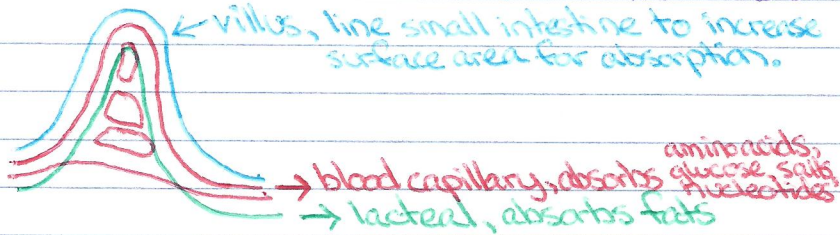 villus, line small intestine to increase
surface area for absorption.
blood capillary, absorbs amino acids,
glucose, salts,
nucleotides
lacteal, absorbs fats